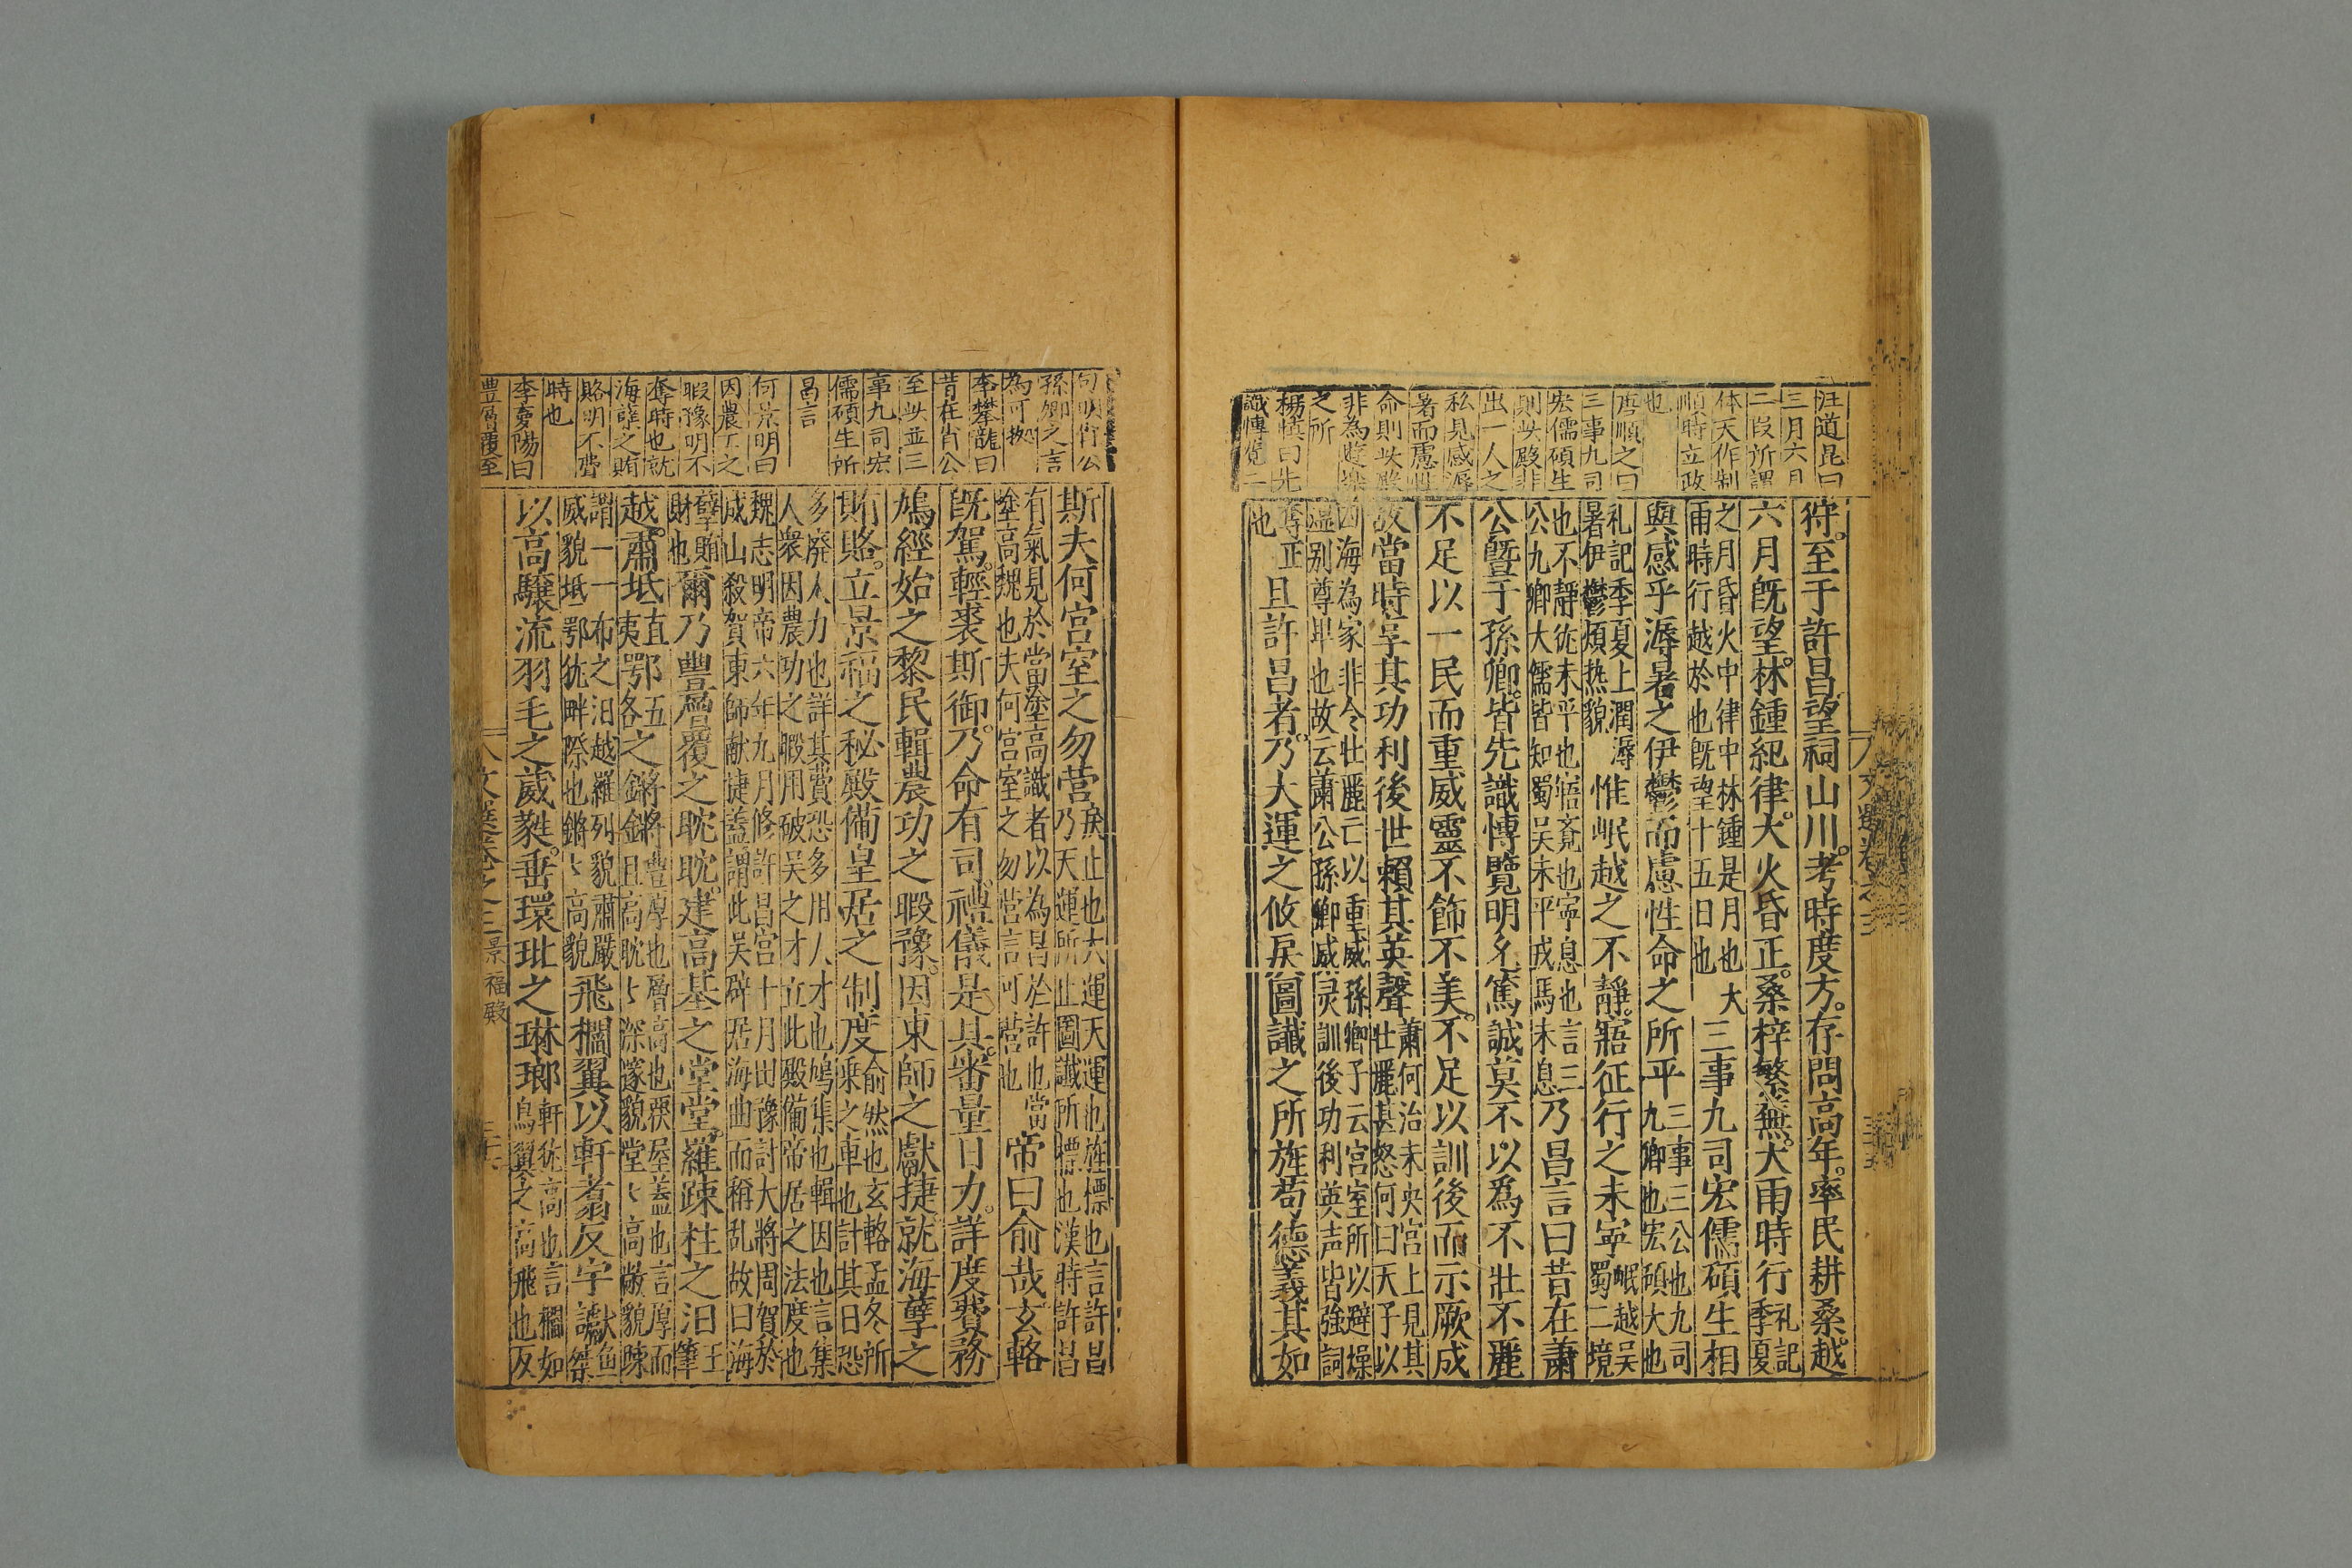 汪道昆曰
三月六月
二段所謂
体天作制
順時立政
也
唐順之曰
三事九司
宏儒碩生
則此殿非
出一人之
私見感溽
暑而慮性
命則此殿
非為遊樂
之所
楊慎曰先
識慱覽二
狩。至于許昌。望祠山川。考時度方。存問高年。率民耕桑。越
六月既望。林鍾紀律。大火昏正。桑梓繁蕪。大雨時行季夏
礼記
之月昏火中律中林鍾是月也大
雨時行越於也既望十五日也
三事九司宏儒碩生相
與感乎溽暑之伊鬱而慮性命之所平
三事三公也九司
九卿也宏碩大也
礼記季夏上潤溽
暑伊鬱煩热貌
惟岷越之不靜。寤征行之未寜
岷越吴
蜀二境
也不靜從未平也寤竟也寧息也言三
公九卿大儒皆知蜀吴未平戎馬未息
乃昌言曰昔在蕭
公曁于孫卿。皆先識慱覽明允篤誠莫不以爲不壯不麗
不足以一民而重威靈不飾不美。不足以訓後而示厥成
故當時享其功利後世賴其英聲
蕭何治未央宫上見其
壮麗甚怒何曰天子以
四海為家非令壮麗亡以重威孫卿子云宫室所以避燥
湿别尊卑也故云蕭公孫卿威灵訓後功利英声皆強詞
奪正
也
且許昌者。乃大運之攸戾圖讖之所旌苟德義其如
文選卷之三
句明肖公
孫卿之言
為可拠
李攀龍曰
昔在肖公
至此並三
事九司宏
儒碩生所
昌言
何景明曰
因農工之
暇豫明不
奪時也就
海孽之賄
賂明不費
時也
李夢陽曰
豊層覆至
斯夫何宫室之勿营
戾止也大運天運也旌標也言許昌
乃天運所止圖讖所標也漢時許昌
有氣見於當塗高識者以為昌於許也當
塗高魏也夫何宫室之勿营言可营也
帝曰俞哉玄輅
既駕。輕裘斯御。乃命有司。禮儀是具。審量日力。詳度費務
鳩經始之黎民輯農功之暇豫。因東師之獻捷就海孽之
賄賂。立景福之秘殿備皇居之制度
俞然也玄輅孟冬所
乘之車也計其日恐
多廢人力也詳其費恐多用人才也鳩集也輯因也言集
人衆因農功之暇用破吴之才立此殿備帝居之法度也
魏志明帝六年九月修許昌宫十月田豫討大將周賀於
成山殺賀東師献捷蓋謂此吴辟居海曲而稱乱故曰海
孽賄
財也
爾乃豐層覆之耽耽。建高基之堂堂。羅疎柱之汨
王
筆
越。肅坻直夷鄂五各之鏘將鏘
將豊厚也層高也覆屋蓋也言厚而
且高耽〻深邃貌堂〻高敞貌踈
謂一一布之汨越羅列貌肅嚴
威貌坻鄂犹畔際也鏘〻高貌
飛櫩翼以軒翥反宇讞献魚桀
以高驤流羽毛之葳蕤。垂環玭之琳瑯
軒犹高也言櫩如
鳥翼之高飛也反
文選卷之三 景福殿